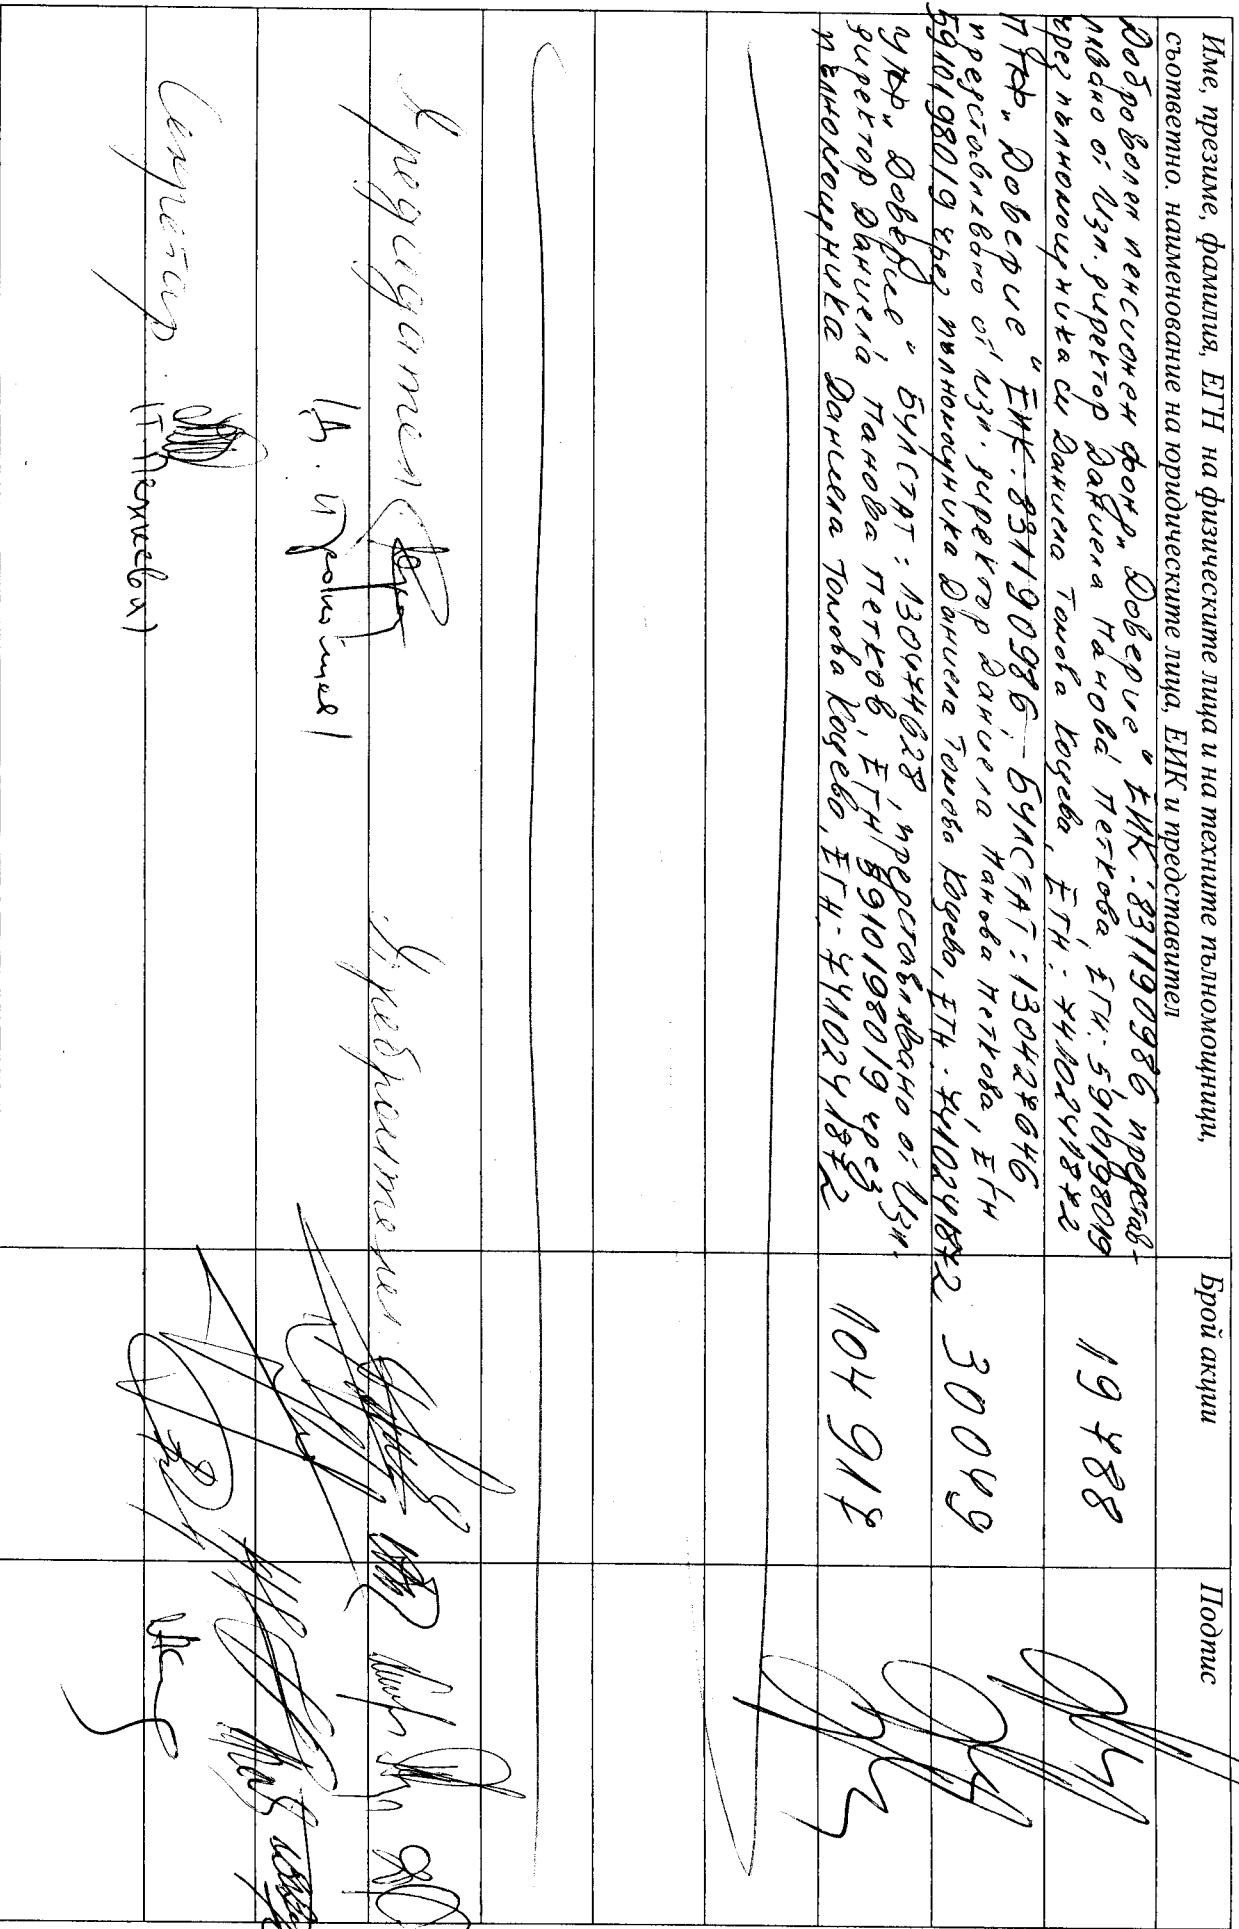 Име, презиме, фамилия, ЕГН на физическите лица и на техните пълномощници,
съответно. наименование на юридическите лица, ЕИК и представител
Брой акции
Подпис
Доброволен пенсионен фонд „Доверие" ЕИК: 831190986 представ-
лявано от Изп. директор Даниела Панова Петкова, ЕГН: 5910198019
чрез пълномощника си Даниела Томова Коцева, ЕГН: 7410241872
19 788
ППФ „Доверие" ЕИК: 831190986 – БУЛСТАТ: 130427646
представлявано от изп. директор Даниела Панова Петкова, ЕГН
5910198019 чрез пълномощника Даниела Томова Коцева, ЕГН: 7410241872
30049
УПФ „Доверие" БУЛСТАТ: 130474628, представлявано от Изп.
директор Даниела Панова Петков, ЕГН 5910198019 чрез
пълномощника Даниела Томова Коцева, ЕГН: 7410241872
104 917
Председател:
Преброители:
Секретар: